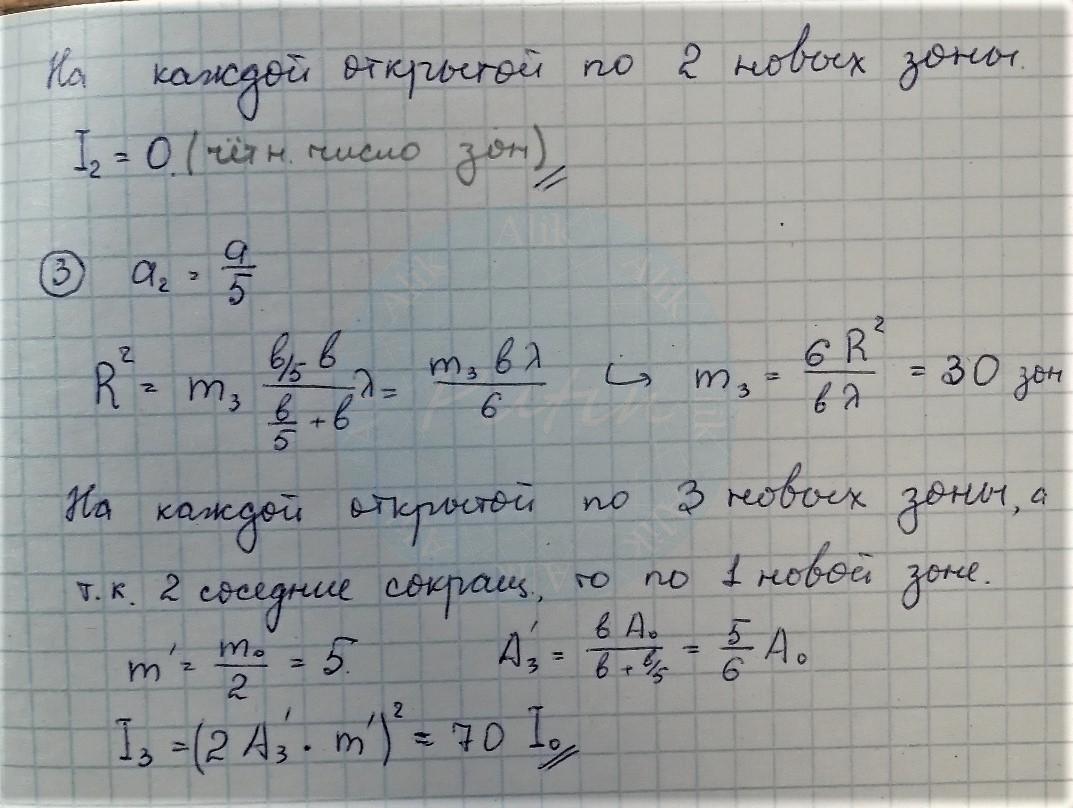 На каждой открытой по 2 новых зоны.
I₂ = 0. (чётн. число зон)
③ a₂ = a/5
R² = m₃ (в/5 в)/(в/5 + в) λ = (m₃ в λ)/6 ↪ m₃ = (6 R²)/(в λ) = 30 зон
На каждой открытой по 3 новых зоны, а
т.к. 2 соседние сокращ., то по 1 новой зоне.
m' = m₀/2 = 5. A₃' = (в A₀)/(в + в/5) = 5/6 A₀
I₃ = (2 A₃' · m')² = 70 I₀